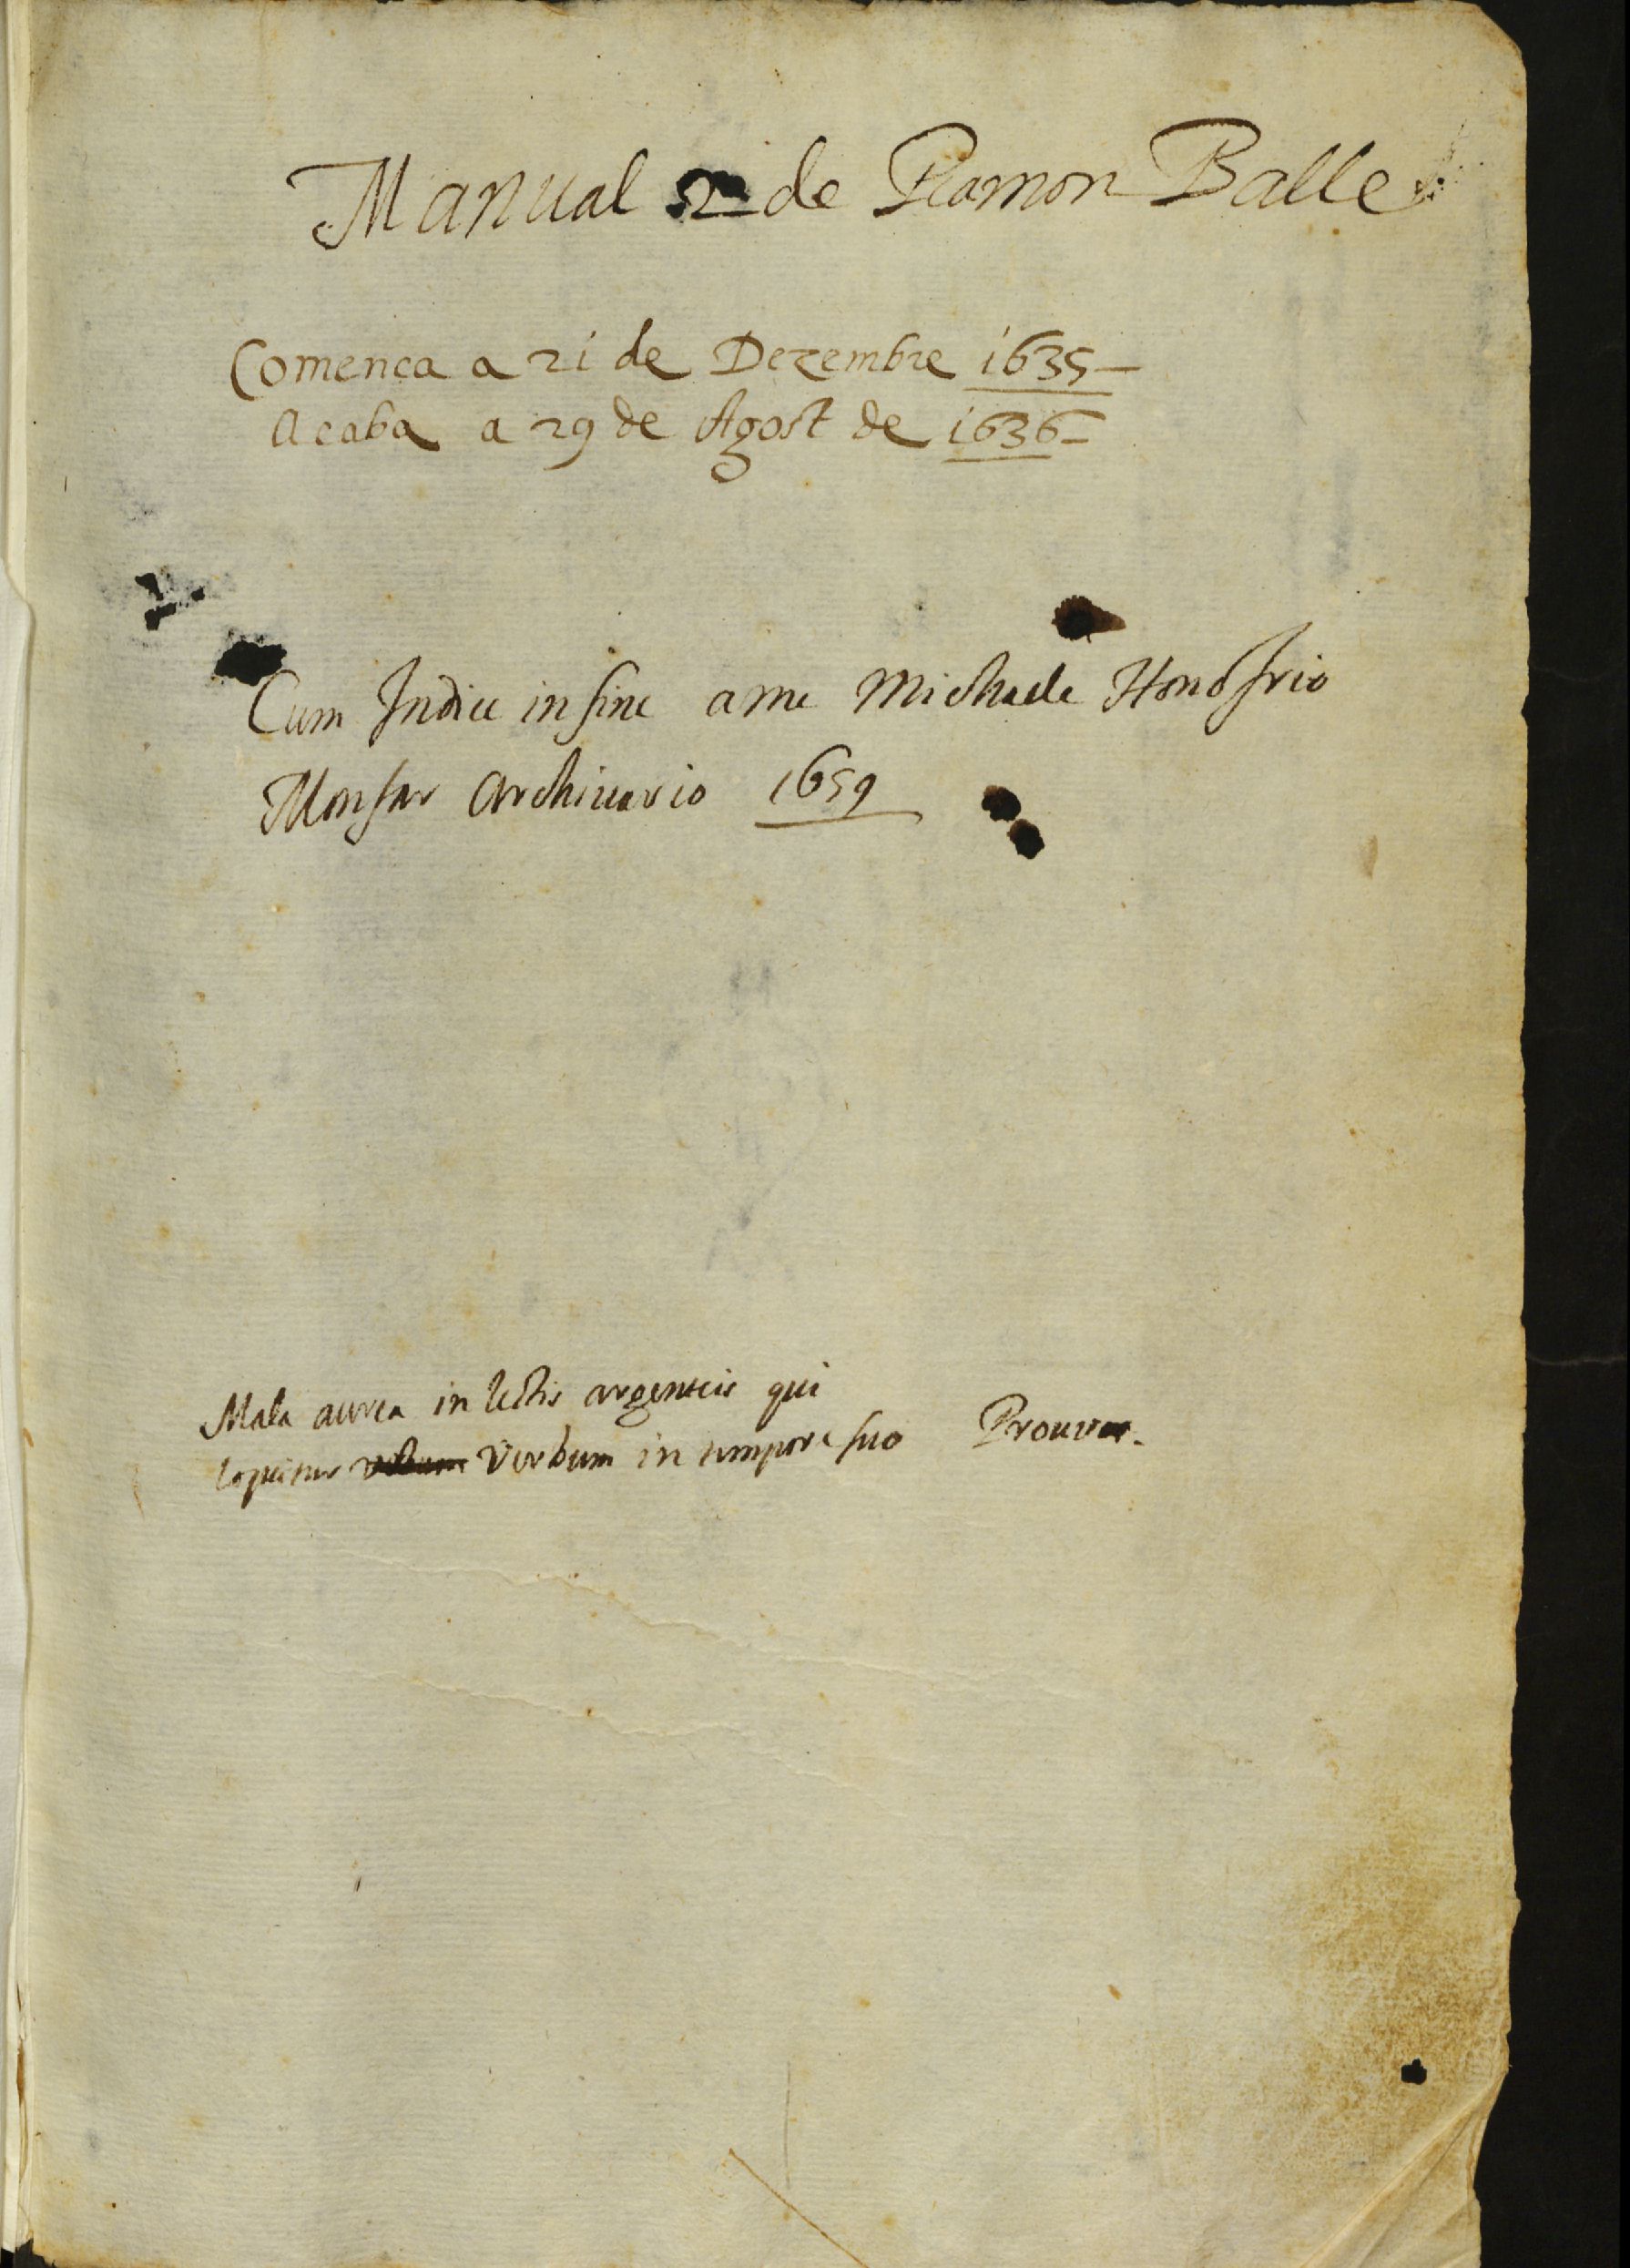 Manual 2n de Ramon Balle
Comenca a 21 de Dezembre 1635
Acaba a 29 de Agost de 1636
Cum Indice in fine a me Michaele Honofrio
Monfar Archivario 1659
Mala aurea in lectis argenteis qui
loquitur verbum in tempore suo Prouer.